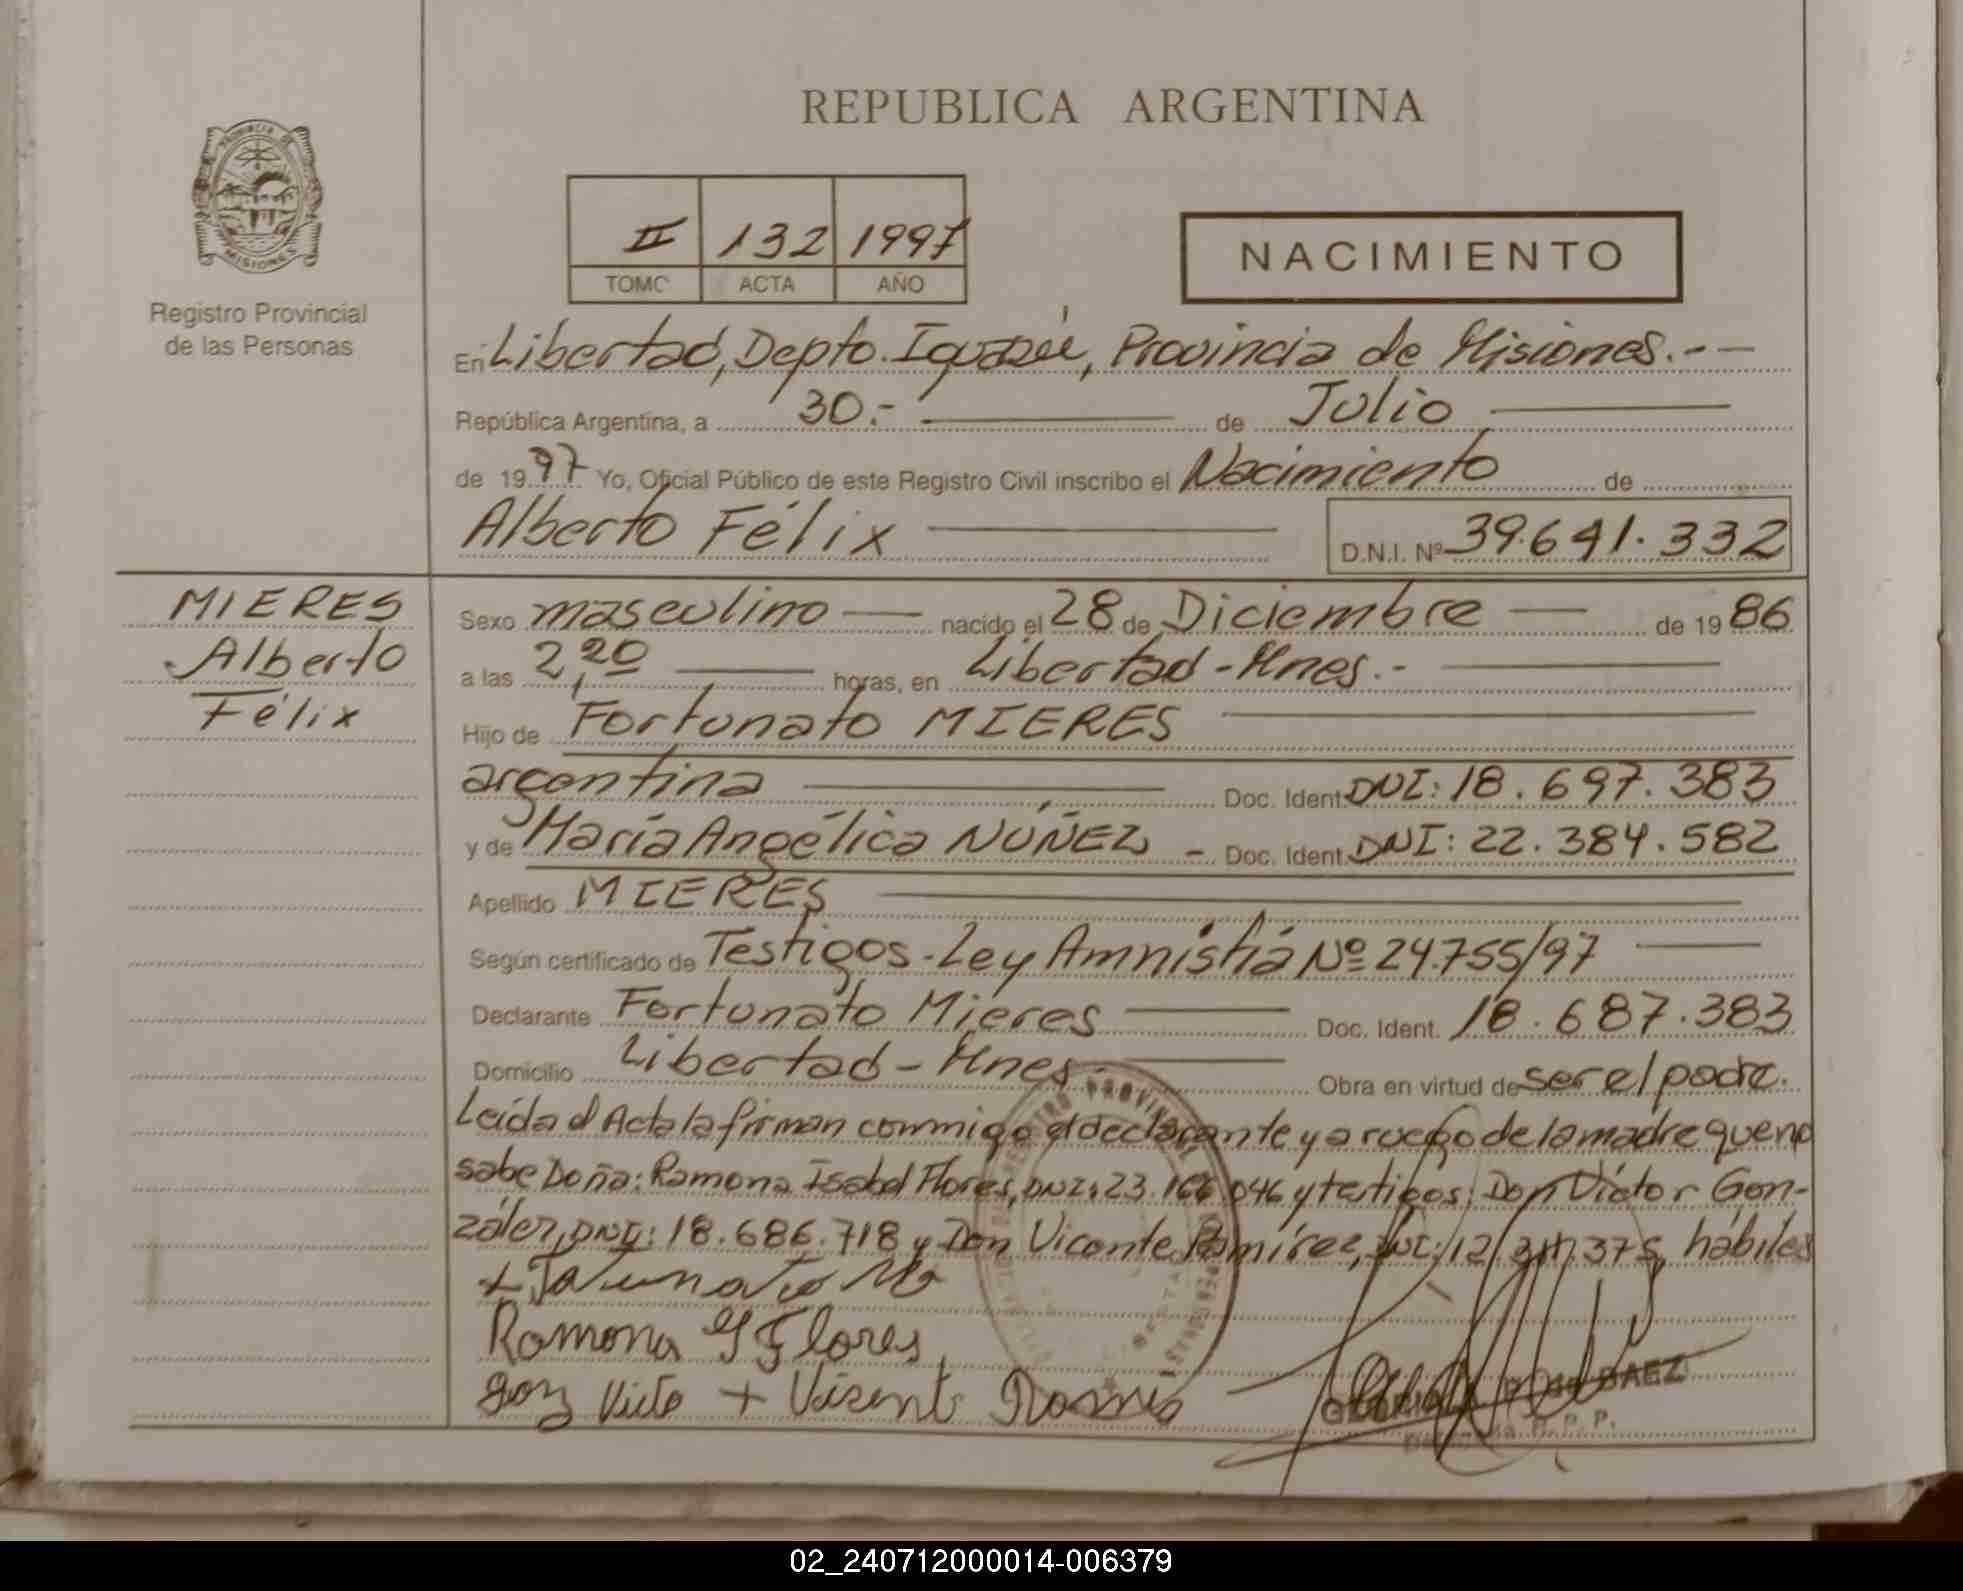 REPUBLICA ARGENTINA
PROVINCIA DE
MISIONES
Registro Provincial
de las Personas
II 132 1997
TOMO ACTA AÑO
NACIMIENTO
En Libertad, Depto. Iguazú, Provincia de Misiones.--
República Argentina, a 30.- de Julio
de 1997 Yo, Oficial Público de este Registro Civil inscribo el Nacimiento de
Alberto Félix D.N.I. Nº 39.641.332
MIERES
Alberto
Félix
Sexo masculino nacido el 28 de Diciembre de 1986
a las 2,20 horas, en Libertad-Mnes.-
Hijo de Fortunato MIERES
argentina Doc. Ident. DNI: 18.697.383
y de María Angélica NÚÑEZ - Doc. Ident. DNI: 22.384.582
Apellido MIERES
Según certificado de Testigos-Ley Amnistía Nº 24.755/97
Declarante Fortunato Mieres Doc. Ident. 18.687.383
Domicilio Libertad-Mnes. Obra en virtud de ser el padre.
Leída el Acta la firman conmigo el declarante y a ruego de la madre que no
sabe Doña: Ramona Isabel Flores, DNI: 23.166.046 y testigos: Don Víctor Gon-
zález, DNI: 18.686.718 y Don Vicente Ramírez, DNI: 12/ 375, hábiles
Ramona Y Flores
Gonz Victo + Visent
BAEZ
R.P.P.
02_240712000014-006379